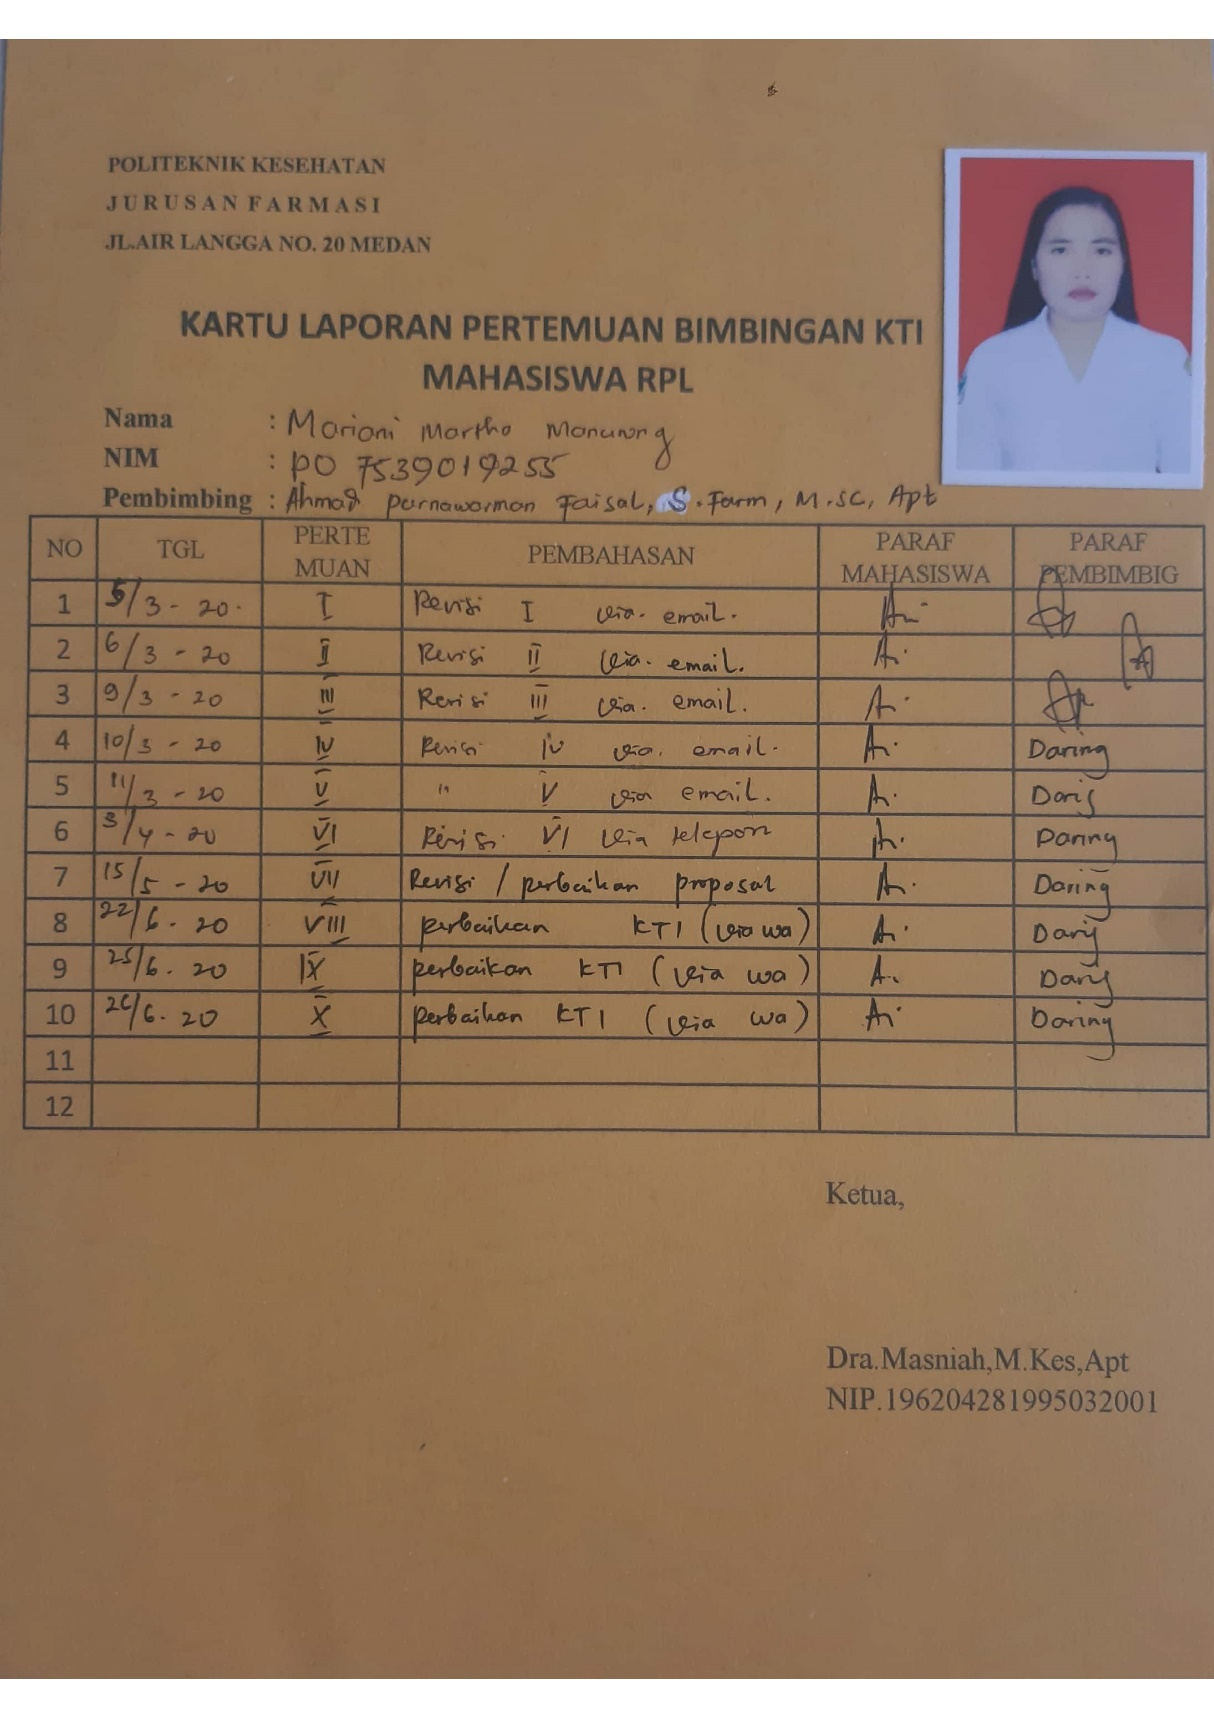 POLITEKNIK KESEHATAN
JURUSAN FARMASI
JL.AIR LANGGA NO. 20 MEDAN
KARTU LAPORAN PERTEMUAN BIMBINGAN KTI
MAHASISWA RPL
Nama : Mariani Martha Manurung
NIM : PO 7539019255
Pembimbing : Ahmad Purnawarman Faisal, S.Farm, M.Sc, Apt
NO TGL PERTE MUAN PEMBAHASAN PARAF MAHASISWA PARAF PEMBIMBIG
1 5/3 - 20. I Revisi I via. email.
2 6/3 - 20 II Revisi II via. email.
3 9/3 - 20 III Revisi III via. email.
4 10/3 - 20 IV Revisi IV via. email. Daring
5 11/3 - 20 V " V via email. Daring
6 3/4 - 20 VI Revisi VI via telepon Daring
7 15/5 - 20 VII Revisi / perbaikan proposal Daring
8 22/6 - 20 VIII perbaikan KTI (via wa) Daring
9 25/6 - 20 IX perbaikan KTI (via wa) Daring
10 26/6 - 20 X perbaikan KTI (via wa) Daring
11
12
Ketua,
Dra.Masniah,M.Kes,Apt
NIP.196204281995032001